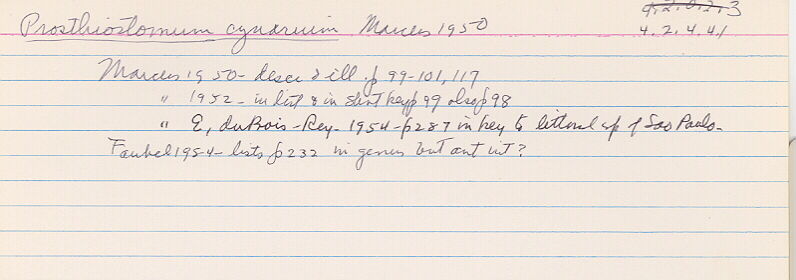 4.2.0.2.3
Prosthiostomum cynarium Marcus 1950
4.2.4.4.1
Marcus 1950 - descr & ill. p 99-101, 117
" 1952 - in list & in short key p 99 also p 98
" E, du Bois-Rey- 1954 - p 287 in key to littoral sp of Sao Paulo-
Faubel 1984 - lists p 232 in genus but